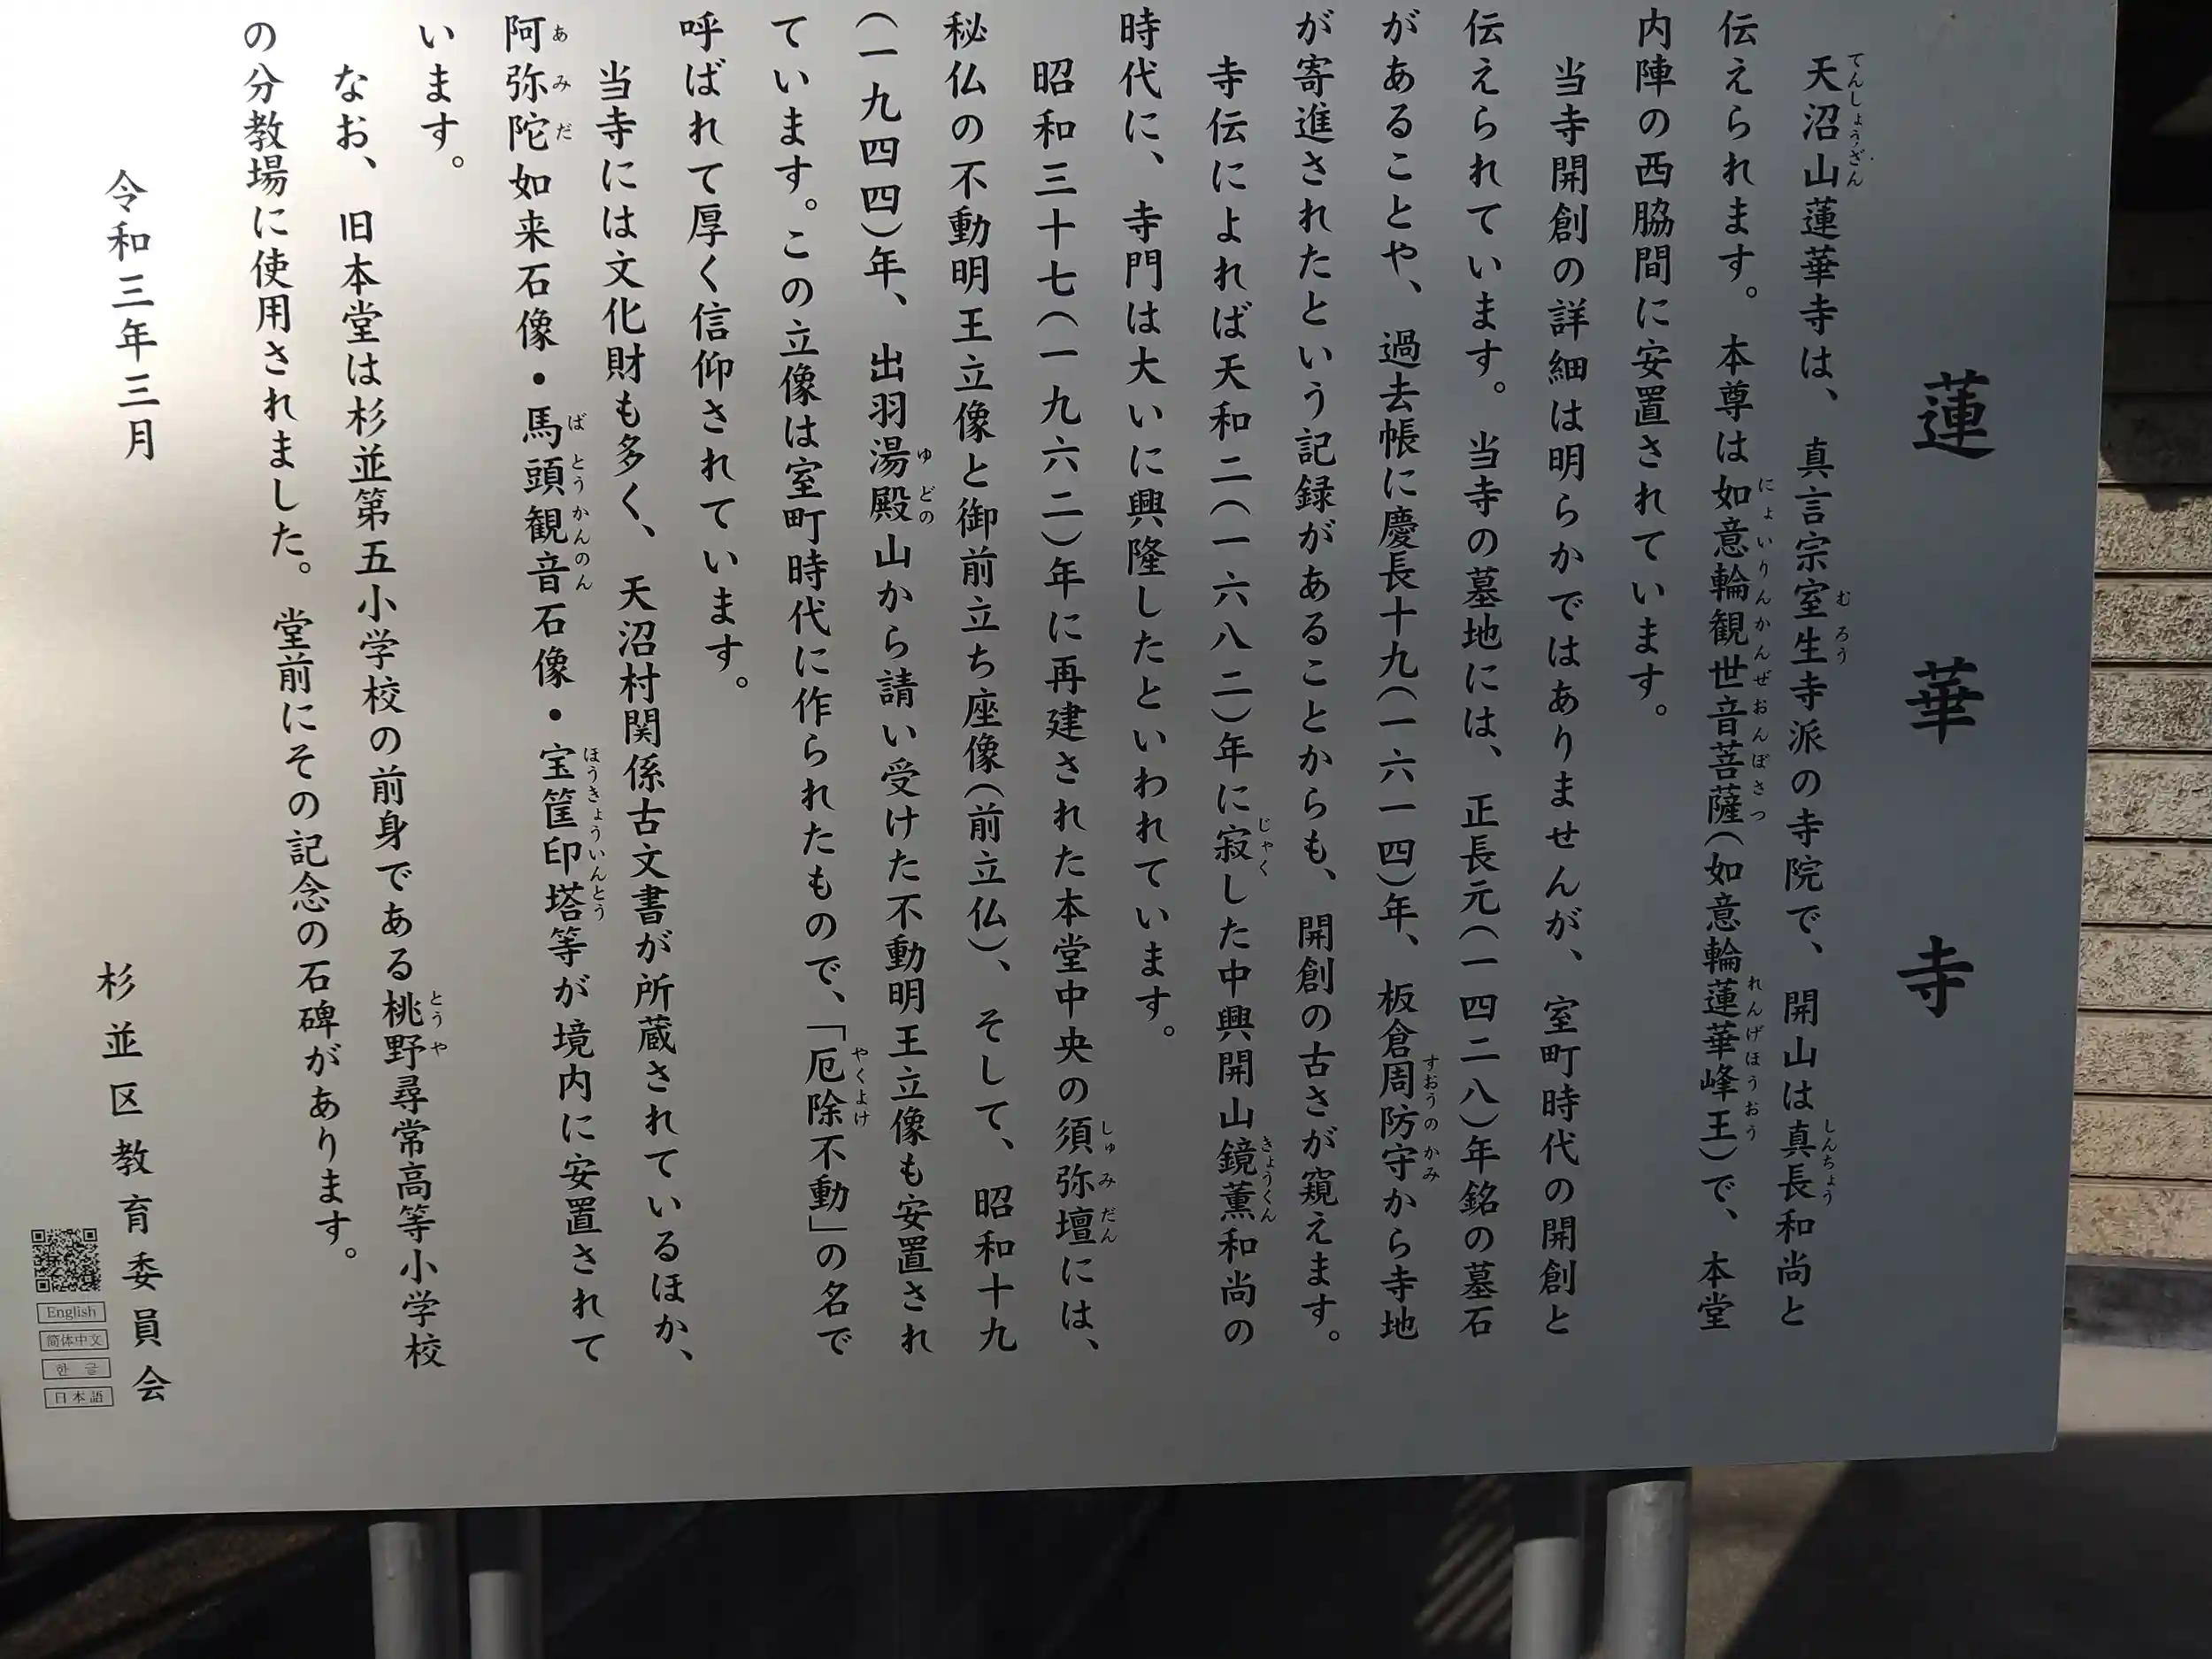 蓮華寺
天沼山蓮華寺は、真言宗室生寺派の寺院で、開山は真長和尚と
伝えられます。本尊は如意輪観世音菩薩(如意輪蓮華峰王)で、本堂
内陣の西脇間に安置されています。
当寺開創の詳細は明らかではありませんが、室町時代の開創と
伝えられています。当寺の墓地には、正長元(一四二八)年銘の墓石
があることや、過去帳に慶長十九(一六一四)年、板倉周防守から寺地
が寄進されたという記録があることからも、開創の古さが窺えます。
寺伝によれば天和二(一六八二)年に寂した中興開山鏡薫和尚の
時代に、寺門は大いに興隆したといわれています。
昭和三十七(一九六二)年に再建された本堂中央の須弥壇には、
秘仏の不動明王立像と御前立ち座像(前立仏)、そして、昭和十九
(一九四四)年、出羽湯殿山から請い受けた不動明王立像も安置され
ています。この立像は室町時代に作られたもので、「厄除不動」の名で
呼ばれて厚く信仰されています。
当寺には文化財も多く、天沼村関係古文書が所蔵されているほか、
阿弥陀如来石像・馬頭観音石像・宝筐印塔等が境内に安置されて
います。
なお、旧本堂は杉並第五小学校の前身である桃野尋常高等小学校
の分教場に使用されました。堂前にその記念の石碑があります。
令和三年三月
杉並区教育委員会
English
简体中文
한글
日本語